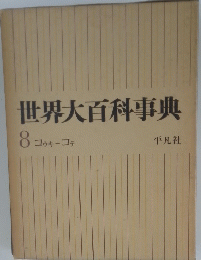 世界大百科事典
8 コウキーコテ
平凡社